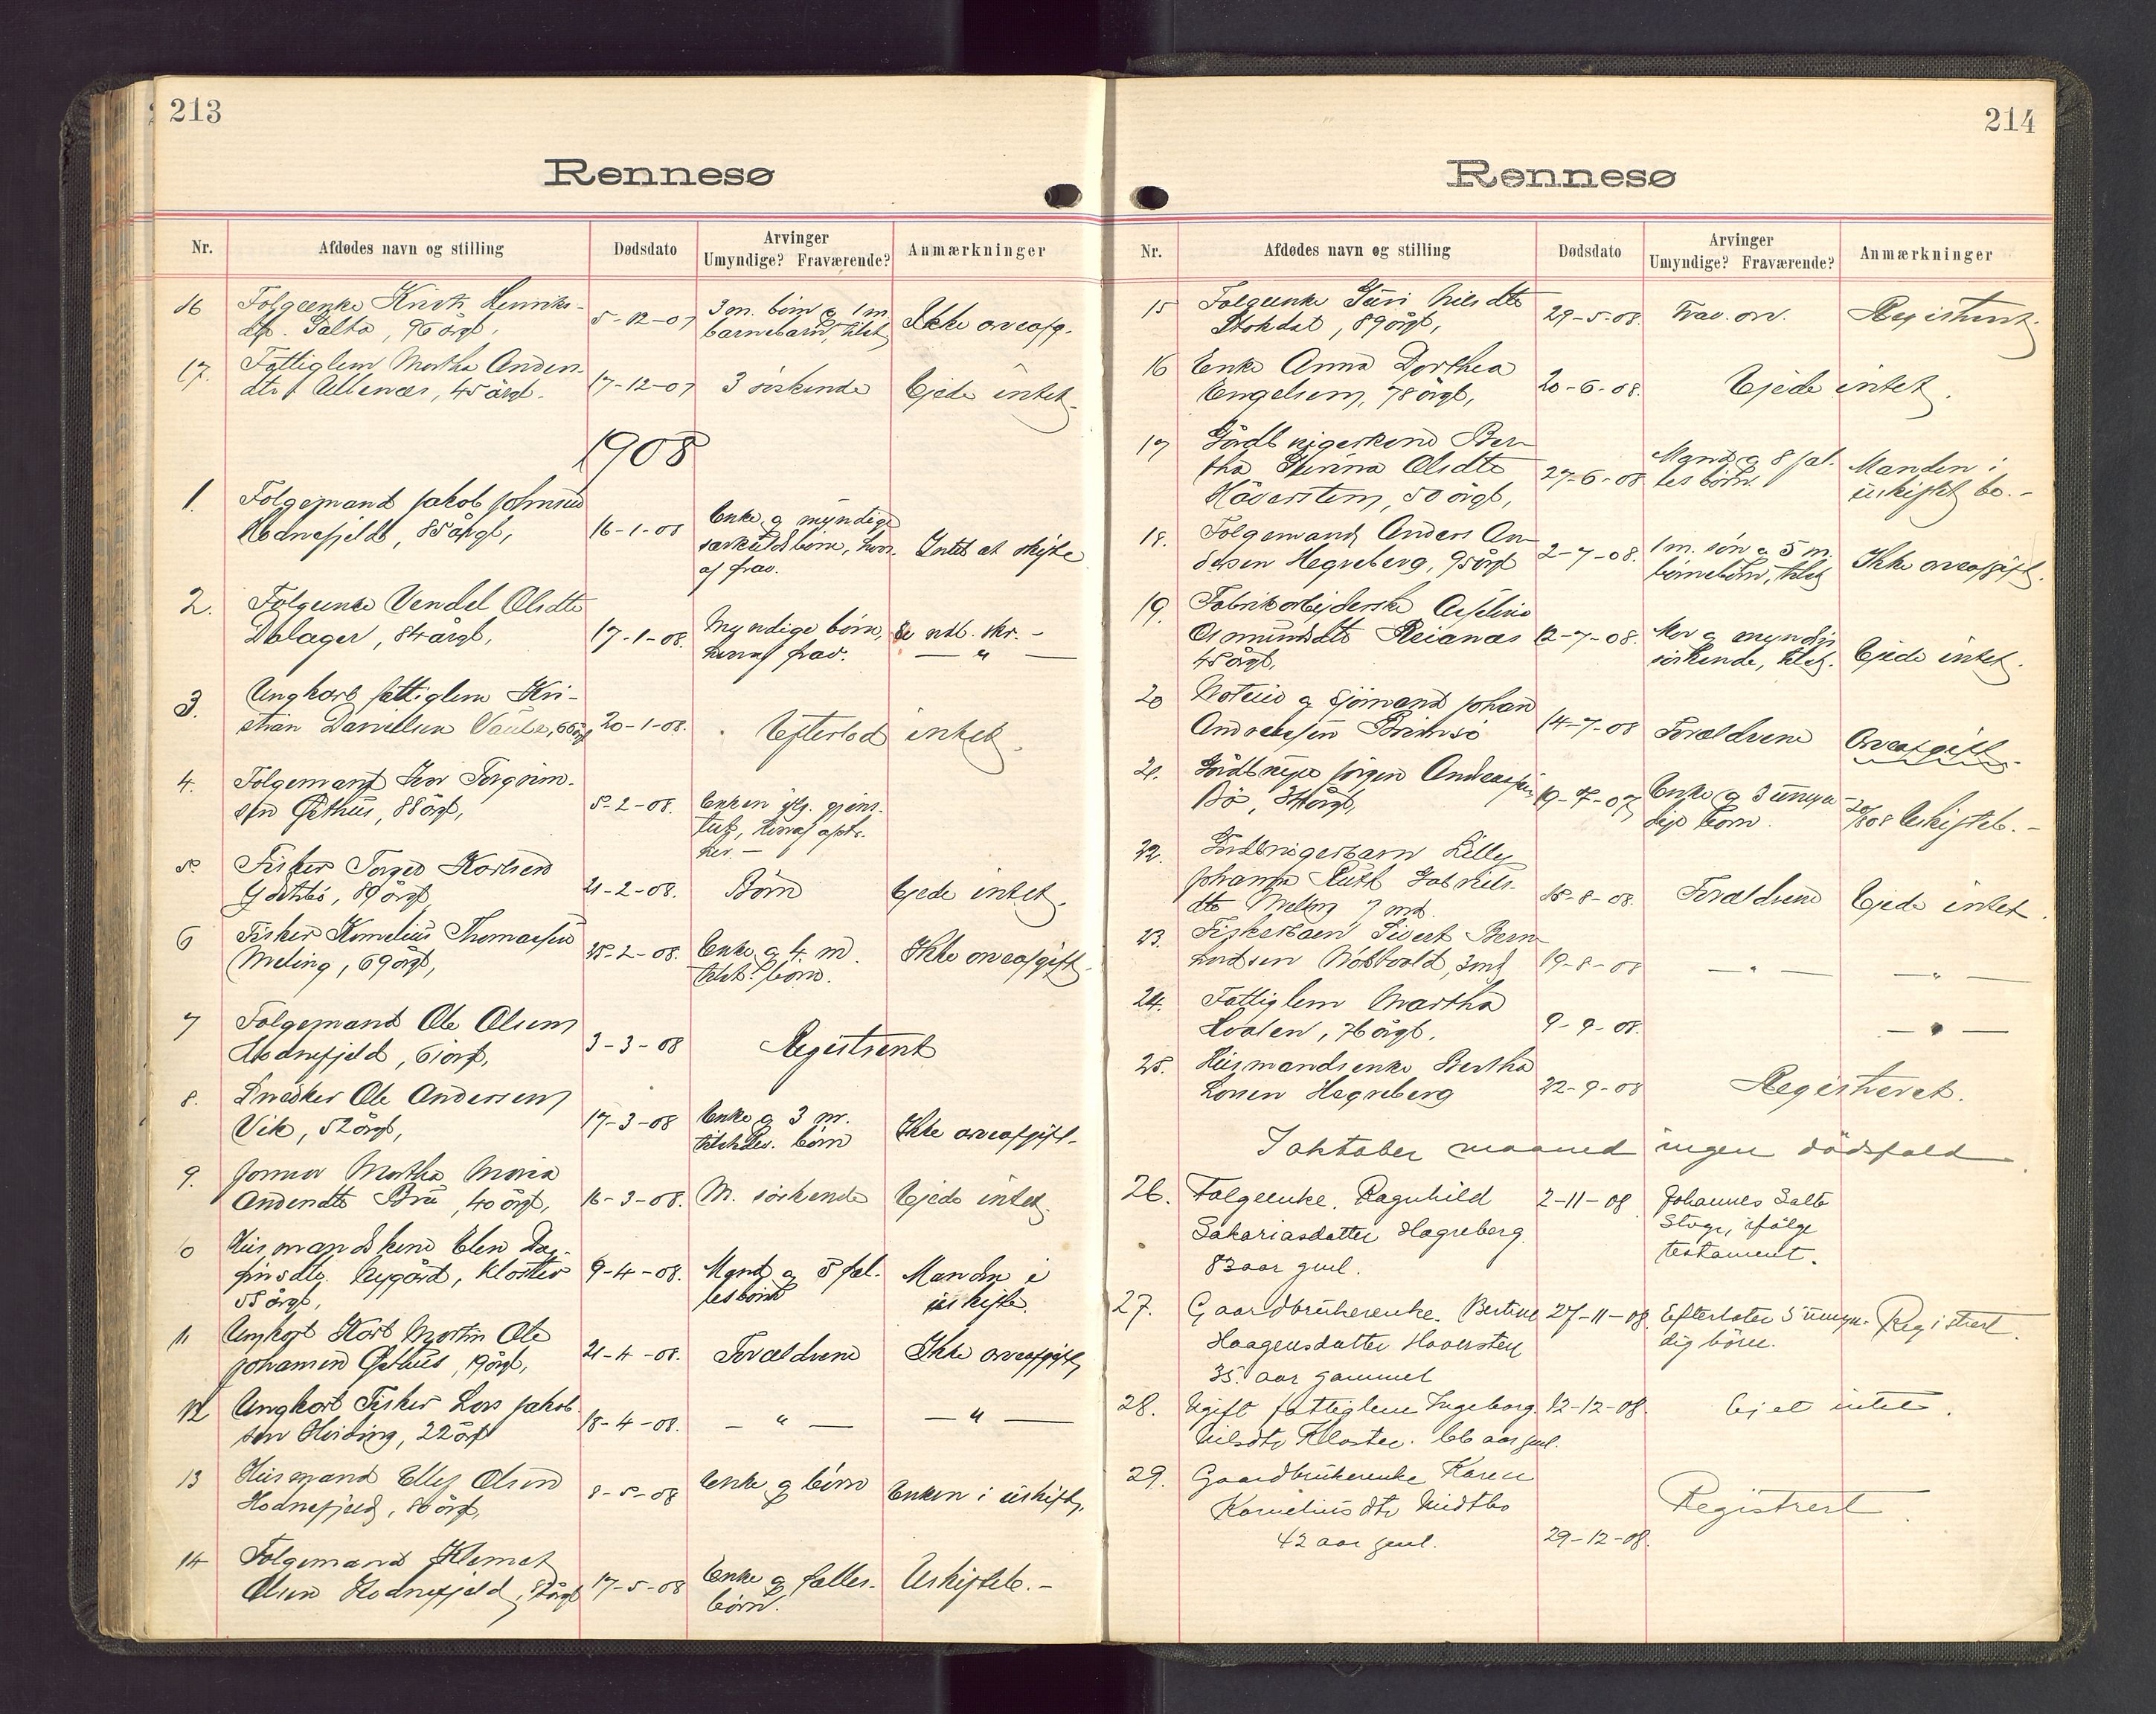 213
Rennesø
Nr. Afdødes navn og stilling Dødsdato Arvinger Umyndige? Fraværende? Anmærkninger
16 Folgeenke Kirsti Henriks-
dtr. Galta, 96 årgl, 5-12-07 3 m. børn og 1 m. barnebarn, tilst. Ikke arveafg.
17. Fattiglem Martha Anders-
dtr Ullenæs, 45 årgl. 17-12-07 3 søskende Ejede intet
1908
1. Folgemand Jakob Johnsen
Hodnefjeld, 85 årgl, 16-1-08 Enke og myndige
særkuldsbørn, hvor-
af frav. Intet at skifte
2. Folgeenke Vendel Olsdtr
Dalager, 84 årgl, 17-1-08. Myndige børn,
hvoraf frav. Se ndl. skr. -
— " —
3. Ungkarl fattiglem Kri-
stian Danielsen Vaula, 66 årgl 20-1-08. Efterlod intet.
4. Folgemand Iver Torgrim-
sen Østhus, 88 årgl, 5-2-08. Enken
5. Fisker Torger Karlsen
89 årgl, 21-2-08. Børn Ejede intet.
6 Fisker Kornelius Thomassen
Meling, 69 årgl, 25-2-08. Enke og 4 m.
tilst. børn. Ikke arveafgift.
7 Folgemand Ole Olsen
Hodnefjeld, 61 årgl, 3-3-08 Registrert
8. Snedker Ole Andersen
Vik, 52 årgl, 17-3-08 Enke og 3 m.
børn Ikke arveafgift.
9. Jomfru Martha Maria
Andersdtr Bru, 40 årgl, 16-3-08. M. søskende Ejede intet.
10 Husmandskone Elen Dag-
finsdtr. Nygård, Kloster
55 årgl, 9-4-08. Mand og 5 fæl-
lesbørn Manden i
uskifte.
11 Ungkarl Karl Martin Ole
Johannesen Østhus, 19 årgl, 21-4-08. Forældrene Ikke arveafgift,
12 Ungkarl Fisker Lars Jakob-
sen Hviding, 22 årgl 18-4-08. — " — — " —
13 Husmand Elling Olsen
Hodnefjeld, 80 årgl, 8-5-08 Enke og børn Enken i uskifte,
14 Folgemand Klemet
Olsen Hodnefjeld, årgl 17-5-08 Enke og fælles-
børn. Uskiftet. -
214
Rennesø
Nr. Afdødes navn og stilling Dødsdato Arvinger Umyndige? Fraværende? Anmærkninger
15 Folgeenke Guri Nilsdtr
Stokdal, 89 årgl, 29-5-08. Frav. arv. Registrert
16 Enke Anna Dorthea
Engelsen, 78 årgl, 20-6-08. Ejede intet.
17 Gårdbrugerkone Ber-
tha Serina Olsdtr
Håversten, 50 årgl, 27-6-08 Mand og 8 fæl-
lesbørn Manden i
uskiftet bo. -
18. Folgemand Anders An-
dersen Hegreberg, 95 årgl 2-7-08. 1 m. søn og 5 m.
børnebørn, tilst. Ikke arveafgift.
19. Fabrikarbejderske Aseline
Osmundsdtr Reianæs
45 årgl, 12-7-08. Mor og myndige
søskende, tilst. Ejede intet.
20 Noteier og sjømand Johan
Andreassen Brimsø 14-7-08 Forældrene Arveafgift.
21. Gårdbruger Jørgen Andreassen
Bø, 34 årgl, 19-7-07 Enke og 3 umyn-
dige børn. 20/8 08 Uskifteb. -
22. Gårdbrugerbarn Lilly
Johanna Ruth Gabriels-
dtr Meling 7 md. 15-8-08. Forældrene Ejede intet.
23. Fiskerbarn Sivert Bern-
hardsen 3 md 19-8-08 — " — — " —
24. Fattiglem Martha
Hvalen, 76 årgl. 9-9-08. — " —
25. Husmandsenke Bertha
Larsen Hegreberg 22-9-08 Registreret.
I oktober maaned ingen dødsfald.
26. Folgeenke. Ragnhild
Sakariasdatter Hagreberg.
83 aar gml. 2-11-08 Johannes Salte
Stoge, ifølge
testament.
27. Gaardbrukerenke. Bertine
Haagensdatter Haversten
35. aar gammel 27-11-08. Efterlater 5 umyn-
dig børn. Registrert.
28. Ugift fattiglem Ingeborg
Nilsdtr Kloster. 66 aar gml. 12-12-08. Ejet intet.
29. Gaardbrukerenke Karen
Kornelius dtr Midtbø
42 aar gml. 29-12-08. Registrert.